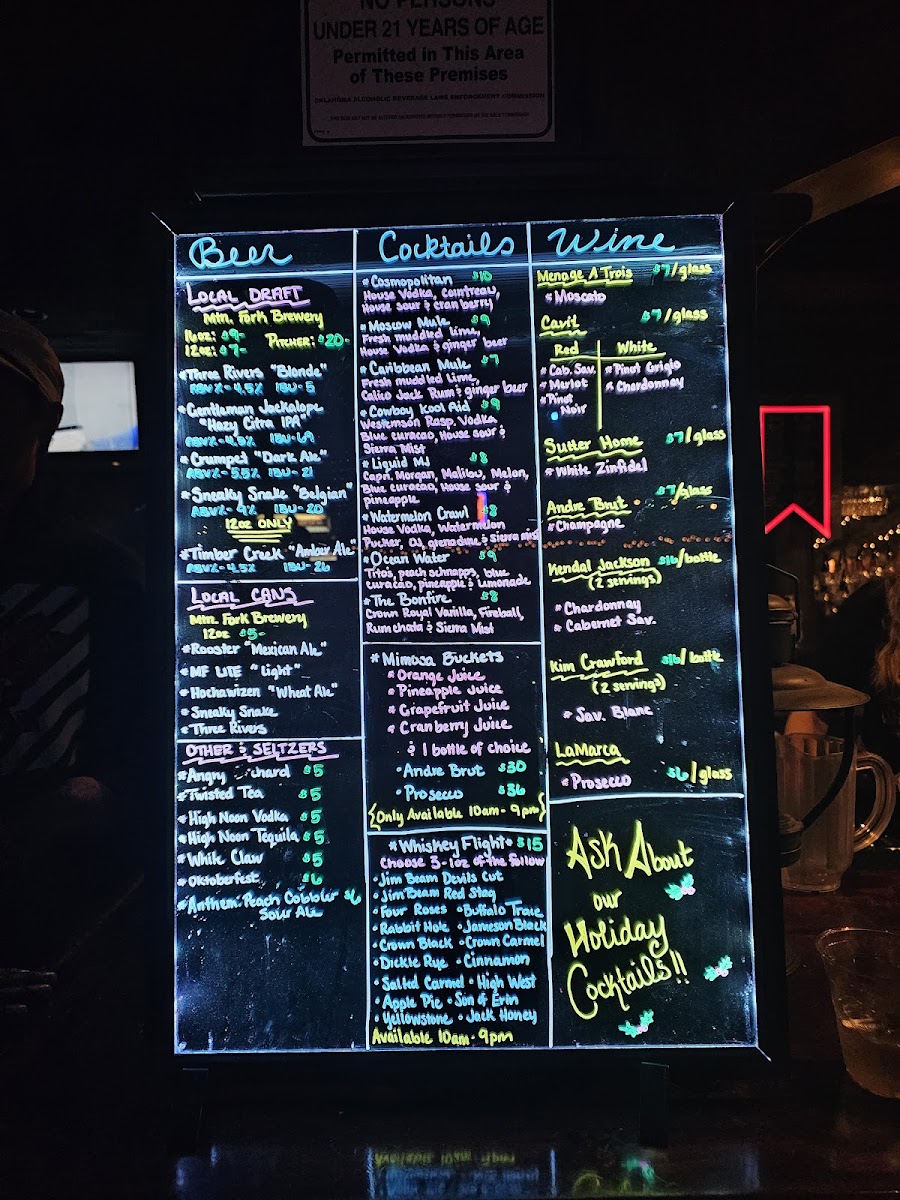 NO PERSONS
UNDER 21 YEARS OF AGE
Permitted in This Area
of These Premises
OKLAHOMA ALCOHOLIC BEVERAGE LAWS ENFORCEMENT COMMISSION
Beer
LOCAL DRAFT
Mtn. Fork Brewery
16oz: $9-
12oz: $7-
PITCHER: $20-
*Three Rivers "Blonde"
ABV%- 4.5% IBU- 5
*Gentleman Jackalope
"Hazy Citra IPA"
IBU-69
*Crumped "Dark Ale"
ABV%- 5.5% IBU- 21
*Sneaky Snake "Belgian"
ABV%- 9% IBU- 20
12oz ONLY
*Timber Creek "Amber Ale"
ABV%- 4.5% IBU- 26
LOCAL CANS
Mtn. Fork Brewery
12oz $5-
*Rooster "Mexican Ale"
*MF LITE "Light"
*Hochawizen "Wheat Ale"
*Sneaky Snake
*Three Rivers
OTHER & SELTZERS
*Angry chard $5
*Twisted Tea $5
*High Noon Vodka $5
*High Noon Tequila $5
*White Claw $5
*Oktoberfest $6
*Anthem: Peach Cobbler $6
Sour Ale
Cocktails
*Cosmopolitan $10
House Vodka, Cointreau,
House sour & cranberry
*Moscow Mule $9
Fresh muddled lime,
House Vodka & ginger beer
*Caribbean Mule $7
Fresh muddled Lime,
Calico Jack Rum & ginger beer
*Cowboy Kool Aid $9
Westernson Rasp. Vodka
Blue curacao, House sour &
Sierra Mist
*Liquid MJ $8
Capt. Morgan, Malibu, Melon,
Blue curacao, House sour &
pineapple
*Watermelon Crawl $8
House Vodka, Watermelon
Pucker, OJ, grenadine & sierra mist
*Ocean Water $9
Tito's, peach schnapps, blue
curacao, pineapple & Limonade
*The Bonfire $8
Crown Royal Vanilla, Fireball,
Rumchata & Sierra Mist
*Mimosa Buckets
*Orange Juice
*Pineapple Juice
*Grapefruit Juice
*Cranberry Juice
& 1 bottle of choice
•Andre Brut $30
•Prosecco $36
{Only Available 10am- 9pm}
*Whiskey Flight* $15
Choose 3-1oz of the follow
•Jim Beam Devils Cut
•Jim Beam Red Stag
•Four Roses •Buffalo Trace
•Rabbit Hole •Jameson Black
•Crown Black •Crown Carmel
•Dickle Rye •Cinnamon
•Salted Carmel •High West
•Apple Pie •Son & Erin
•Yellowstone •Jack Honey
Available 10am- 9pm
Wine
Menage A Trois $7/glass
*Moscato
Cavit $7/glass
Red White
*Cab. Sav. *Pinot Grigio
*Merlot *Chardonnay
*Pinot
Noir
Sutter Home $7/glass
*White Zinfidel
Andre Brut $7/glass
*Champagne
Kendal Jackson $16/bottle
(2 servings)
*Chardonnay
*Cabernet Sav.
Kim Crawford $16/bottle
(2 servings)
*Sav. Blanc
LaMarca
*Prosecco $6/glass
Ask About
our
Holiday
Cocktails!!